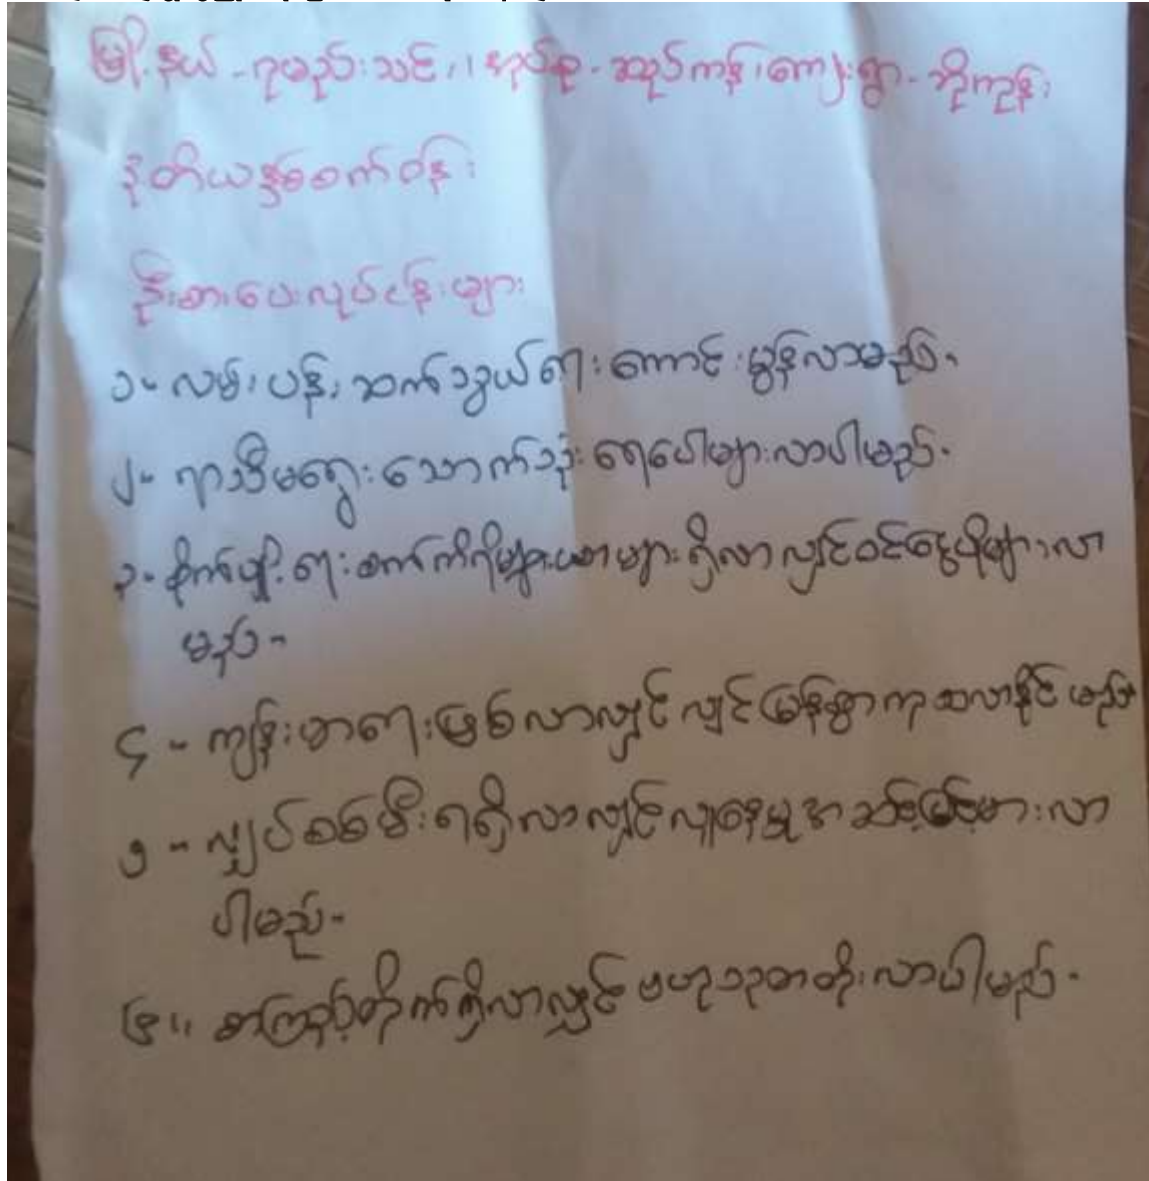 မြို့နယ် - ဂုမည်းသင်း၊ အုပ်စု - အုပ်ကန်၊ကျေးရွာ - ဘိုကုန်း
ဒုတိယနှစ်စက်ဝန်း
ဦးစားပေးလုပ်ငန်းများ
၁။ လမ်းပန်းဆက်သွယ်ရေးကောင်းမွန်လာမည်။
၂။ ရာသီမရွေးသောက်သုံးရေပေါများလာပါမည်။
၃။ စိုက်ပျိုးရေးစက်ကိရိများယာများရှိလာလျှင်ဝင်ငွေပိုများလာ
မည်။
၄။ ကျန်းမာရေးဖြစ်လာလျှင်လျင်မြန်စွာကုသလာနိုင်မည်။
၅။ လျှပ်စစ်မီးရရှိလာလျှင်လူနေမှုအဆင့်မြင့်မားလာ
ပါမည်။
၆။ စာကြည့်တိုက်ရှိလာလျှင်ဗဟုသုတတိုးလာပါမည်။